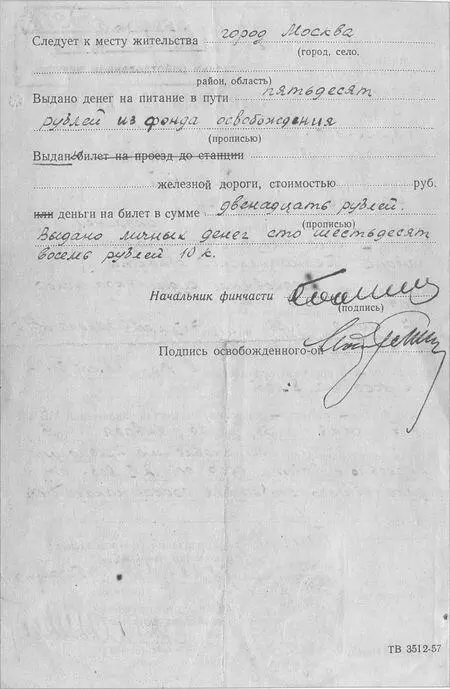 Следует к месту жительства город Москва
(город, село.
район, область)
Выдано денег на питание в пути пятьдесят
рублей из фонда освобождения
(прописью)
Выдан билет на проезд до станции
железной дороги, стоимостью руб.
или деньги на билет в сумме двенадцать рублей.
(прописью)
Выдано личных денег сто шестьдесят
восемь рублей 10 к.
Начальник финчасти
(подпись)
Подпись освобожденного-ой
ТВ 3512-57